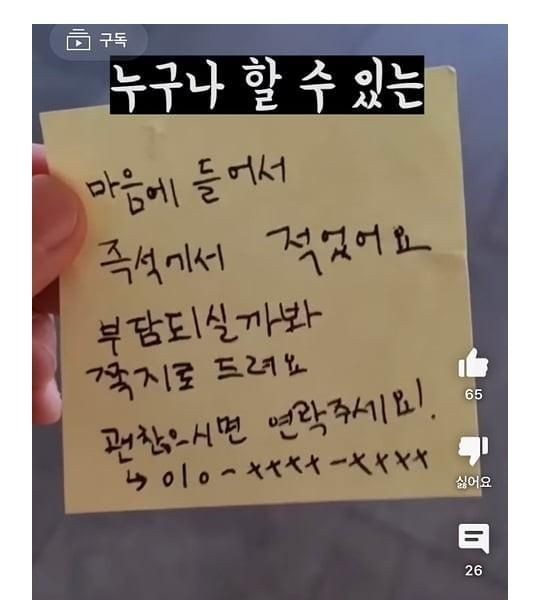 구독
누구나 할 수 있는
마음에 들어서
즉석에서 적었어요
부담되실까봐
쪽지로 드려요
괜찮으시면 연락주세요!
↳ 010-xxxx-xxxx
65
싫어요
26